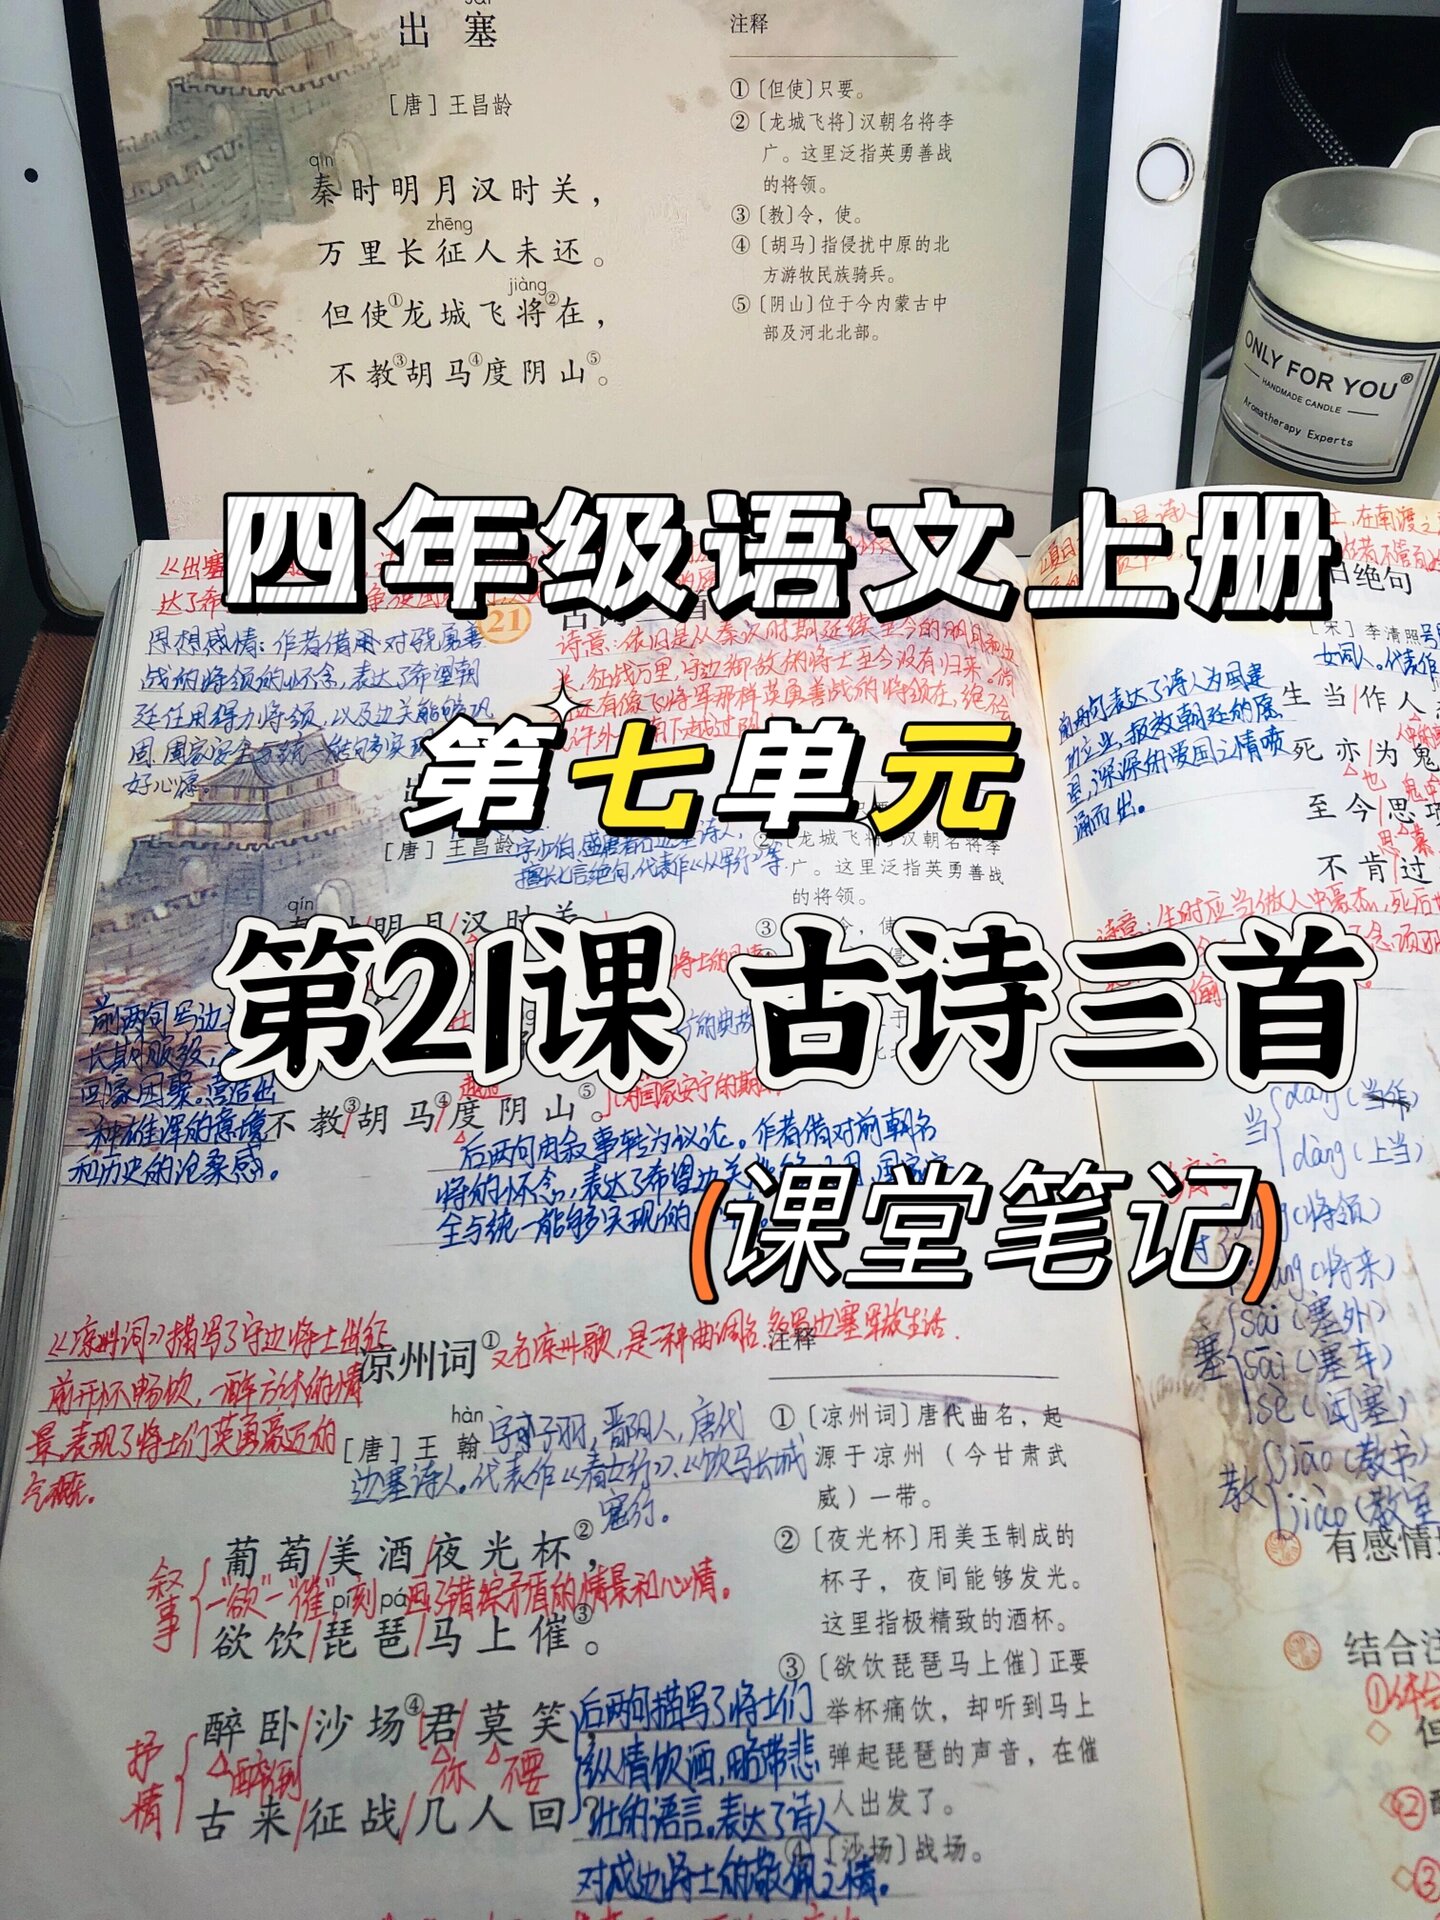 sài
出塞
[唐]王昌龄
qín
秦时明月汉时关，
zhēng
万里长征人未还。
jiàng
但使①龙城飞将②在，
不教③胡马④度阴山⑤。
注释
①〔但使〕只要。
②〔龙城飞将〕汉朝名将李
广。这里泛指英勇善战
的将领。
③〔教〕令，使。
④〔胡马〕指侵扰中原的北
方游牧民族骑兵。
⑤〔阴山〕位于今内蒙古中
部及河北北部。
ONLY FOR YOU®
HANDMADE CANDLE
Aromatherapy Experts
四年级语文上册
第七单元
第21课 古诗三首
(课堂笔记)
21
思想感情：作者借用对骁勇善
战的将领的怀念，表达了希望朝
廷任用得力将领，以及边关能够巩
固、国家安全与统一能够实现
好心愿。
诗意：依旧是从秦汉时期延续至今的明月和边
关，征战万里，守边御敌的将士至今没有归来。倘
还有像飞将军那样英勇善战的将领在，绝不会
[唐]王昌龄
字少伯，盛唐著名边塞诗人，
擅长七言绝句，代表作《从军行》等。
②〔龙城飞将〕汉朝名将李
广。这里泛指英勇善战
的将领。
qín
前两句写边
长期服役，
回家团聚。营造出
一种雄浑的意境
和历史的沧桑感。
不教③胡马④度阴山⑤。
越过
对国家安宁的期
后两句由叙事转为议论。作者借对前朝名
将的怀念，表达了希望边关
全与统一能够实现的
《凉州词》描写了守边将士出征
前开怀畅饮，一醉方休的情
景，表现了将士们英勇豪迈的
气概。
凉州词①
又名凉州歌，是一种曲调名，多写边塞军旅生活.
注释
hàn
[唐]王翰
字子羽，晋阳人，唐代
边塞诗人。代表作《春女行》、《饮马长城
窟行。
葡萄/美酒/夜光杯②，
叙事
"欲"一"催"刻画了错综矛盾的情景和心情。
pí pá
欲饮/琵琶/马上催③。
醉卧/沙场④君/莫笑，
抒情
醉倒
你
不要
古来/征战/几人回？
后两句描写了将士们
纵情饮酒，略带悲
壮的语言。表达了诗人
对戍边将士的敬佩之情。
①〔凉州词〕唐代曲名，起
源于凉州（今甘肃武
威）一带。
②〔夜光杯〕用美玉制成的
杯子，夜间能够发光。
这里指极精致的酒杯。
③〔欲饮琵琶马上催〕正要
举杯痛饮，却听到马上
弹起琵琶的声音，在催
人出发了。
④〔沙场〕战场。
日绝句
[宋]李清照
女词人。代表作
前两句表达了诗人为国建
功立业、报效朝廷的愿
望，深深的爱国之情喷
涌而出。
生当/作人
死亦/为鬼
也
至今/思项
思慕
不肯/过
诗意：生时应当做人中豪杰，死后
当
dāng(当作)
dàng(上当)
(将领)
(将来)
塞
sài(塞外)
sāi(塞车)
sè(闭塞)
教
jiāo(教书)
jiào(教室
有感情
结合注